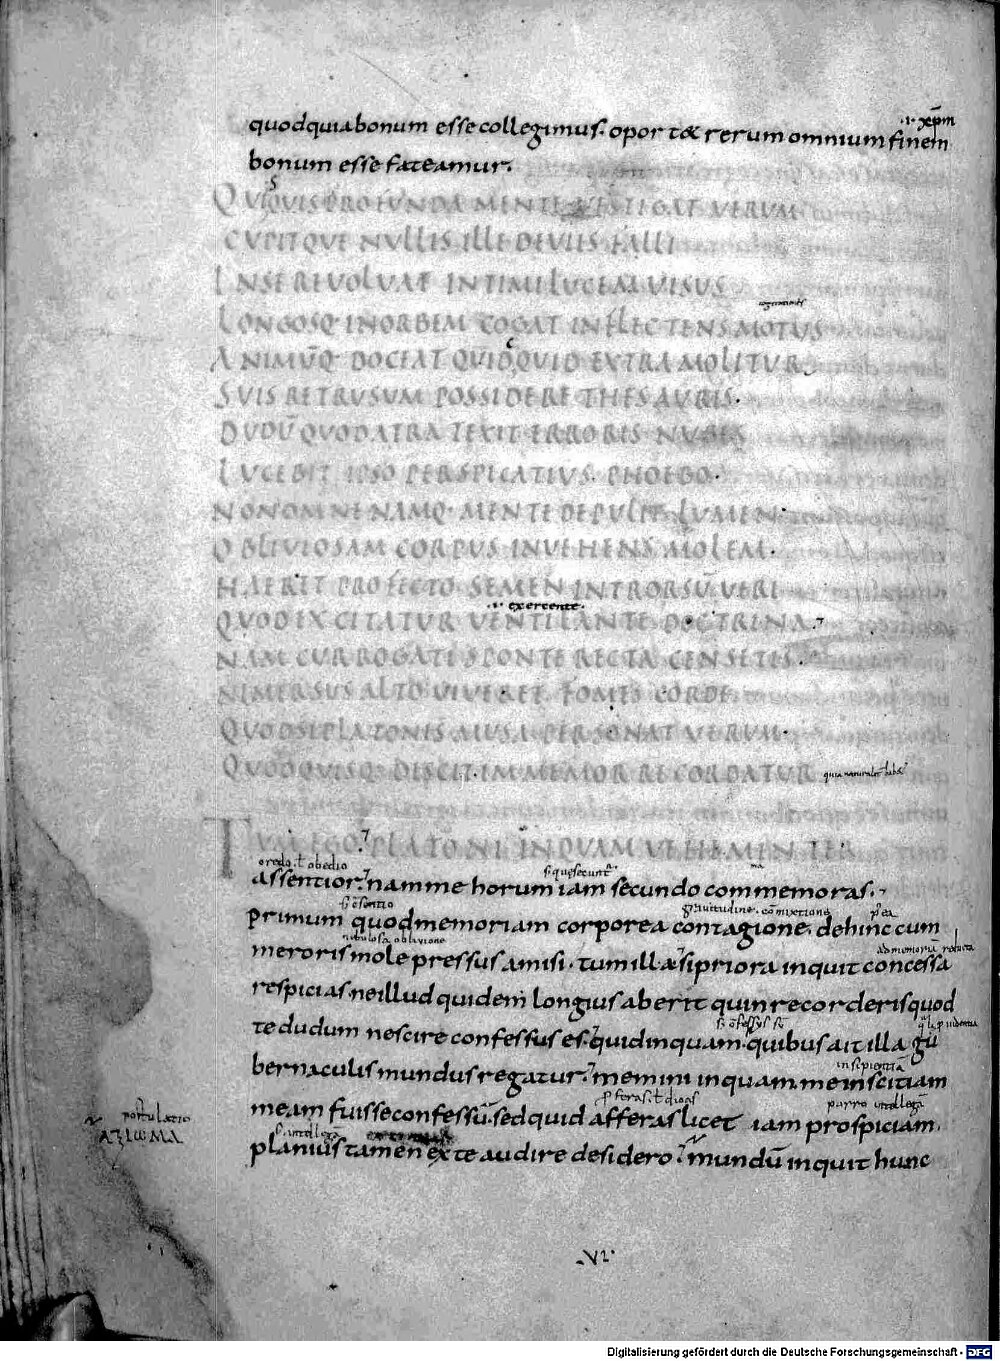 .i. xp̄m
quodquiabonum esse collegimus. oport& rerum omnium finem
bonum esse fateamur.
QUISQUIS PROFUNDA MENTE VESTIGAT VERUM
CUPITQUE NULLIS ILLE DEVIIS FALLI
INSE REVOLVAT INTIMI LUCEM VISUS
LONGOSQ· INORBEM COGAT INFLECTENS MOTUS
ANIMŪQ· DOCEAT QUIDQUID EXTRA MOLITUR
SUIS RETRUSUM POSSIDERE THESAURIS.
DUDŪ QUOD ATRA TEXIT ERRORIS NUBES
LUCEBIT IPSO PERSPICATIUS PHOEBO.
NONOMNE NAMQ· MENTE DEPULIT LUMEN
OBLIVIOSAM CORPUS INVEHENS MOLEM.
HAERET PROFECTO SEMEN INTRORSŪ VERI
.i. exercente.
QUOD EXCITATUR VENTILANTE DOCTRINA
NAM CUR ROGATI SPONTE RECTA CENSETIS.
NI MERSUS ALTO VIVERET FOMES CORDE
QUODSI PLATONIS MUSA PERSONAT VERUM.
QUODQUISQ· DISCIT IMMEMOR RECORDATUR
TUM EGO PLATONI INQUAM VEHEMENTER
credo. ł obedio
assentior. nam me horum iam secundo commemoras.
primum quod memoriam corporea contagione. dehinc cum
meroris mole pressus amisi. tum illa si priora inquit concessa
respicias. ne illud quidem longius aberit quin recorderis quod
te dudum nescire confessus es. quid inquam. quibus ait illa gu
bernaculis mundus regatur. memini inquam. me inscitiam
meam fuisse confessū. sed quid afferas licet iam prospiciam.
postulatio
ΑΞΙΩΜΑ
planius tamen ex te audire desidero. mundū inquit hunc
.VI.
Digitalisierung gefördert durch die Deutsche Forschungsgemeinschaft - DFG